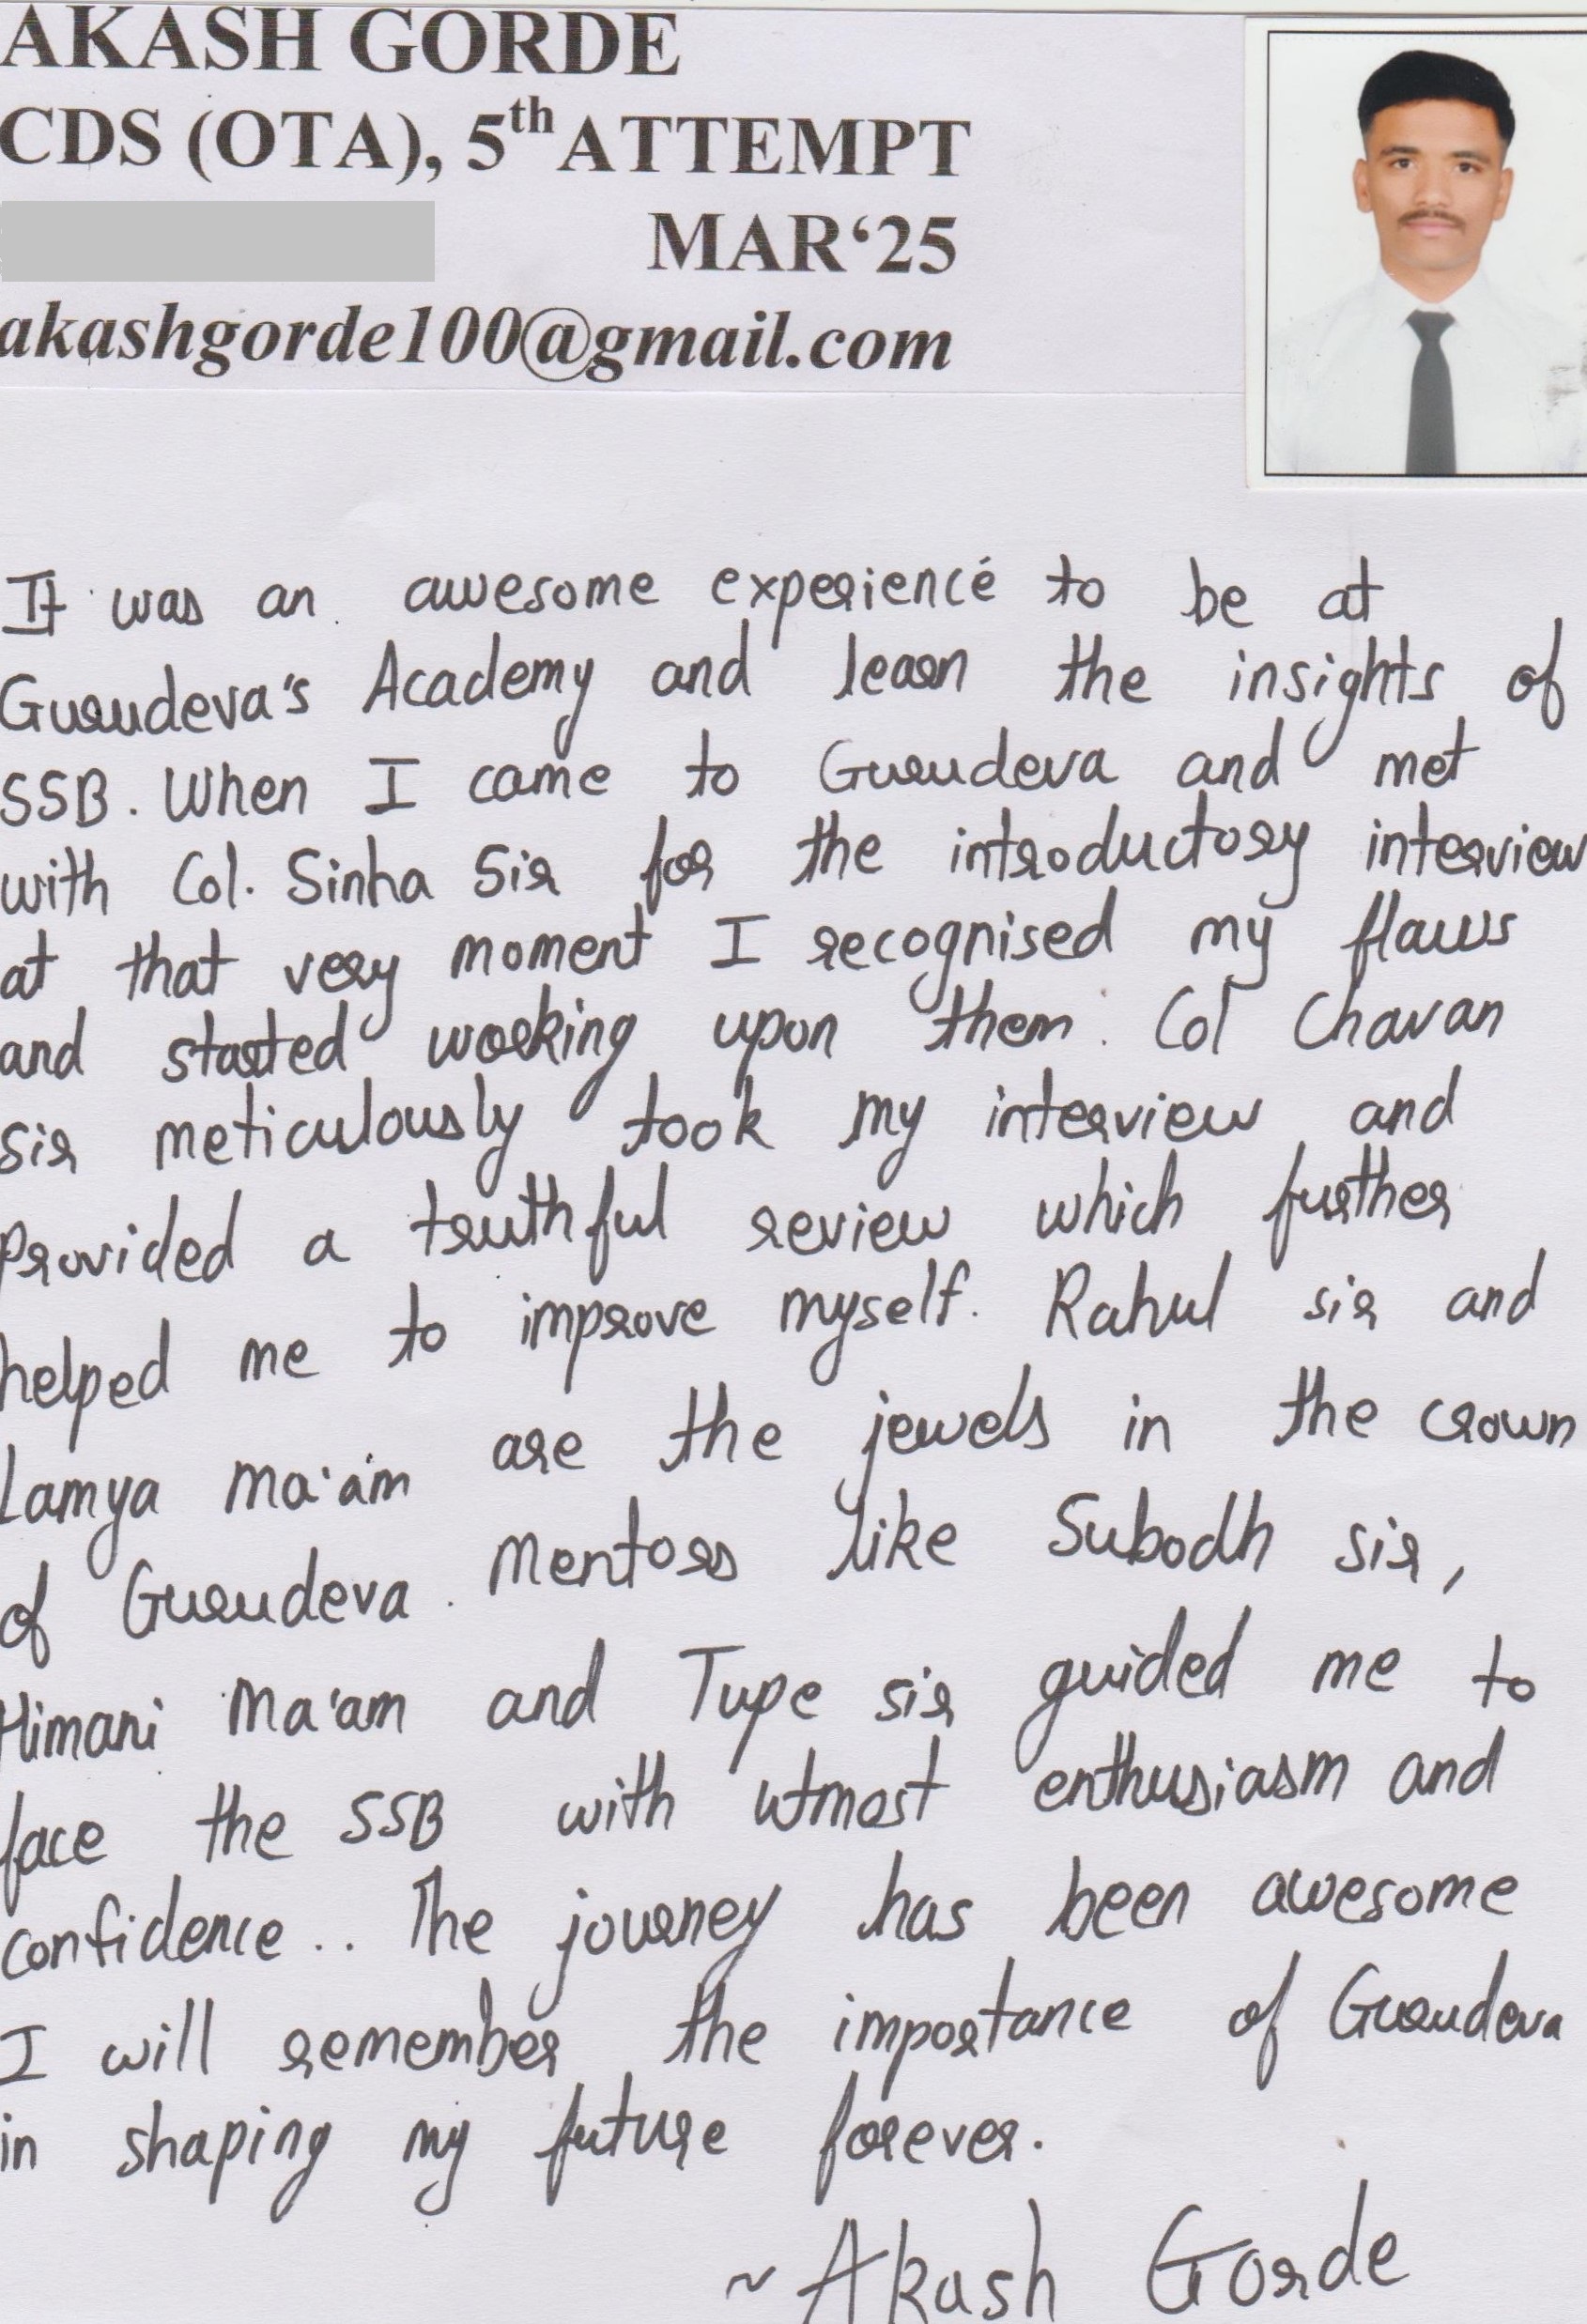 AKASH GORDE
CDS (OTA), 5th ATTEMPT
MAR‘25
akashgorde100@gmail.com
It was an awesome experience to be at
Gurudeva's Academy and learn the insights of
SSB. When I came to Gurudeva and met
with Col. Sinha Sir for the introductory interview
at that very moment I recognised my flaws
and started working upon them. Col Chavan
sir meticulously took my interview and
Provided a truthful review which further
helped me to improve myself. Rahul sir and
Lamya Ma'am are the jewels in the crown
of Gurudeva. Mentors like Subodh sir,
Himani Ma'am and Tupe sir guided me to
face the SSB with utmost enthusiasm and
confidence.. The journey has been awesome
I will remember the importance of Gurudeva
in shaping my future forever.
~ Akash Gorde